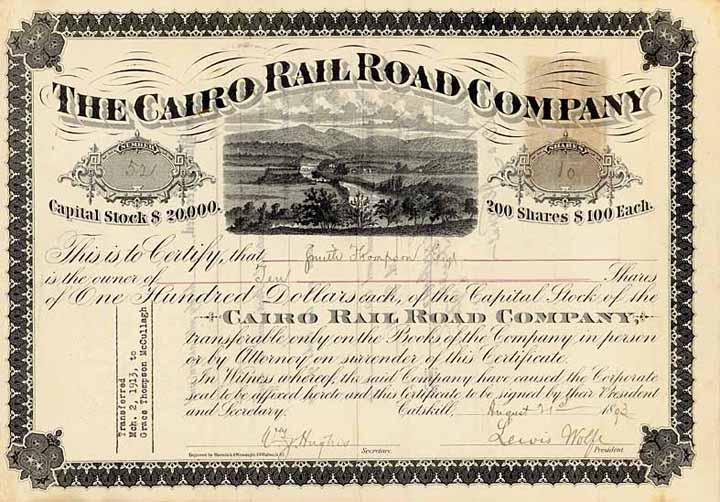 THE CAIRO RAIL ROAD COMPANY
NUMBER
52
SHARES
10
Capital Stock $ 20,000.
200 Shares $ 100 Each.
This is to Certify, that Smith Thompson
is the owner of Ten Shares
of One Hundred Dollars each, of the Capital Stock of the
CAIRO RAIL ROAD COMPANY,
transferable only on the Books of the Company in person
or by Attorney on surrender of this Certificate.
In Witness whereof, the said Company have caused the Corporate
seal to be affixed hereto and this Certificate to be signed by their President
and Secretary. Catskill, August 1893
Hughes Secretary. Lewis Wolfe President
Transferred
Mch. 2, 1913, to
Grace Thompson McCullagh